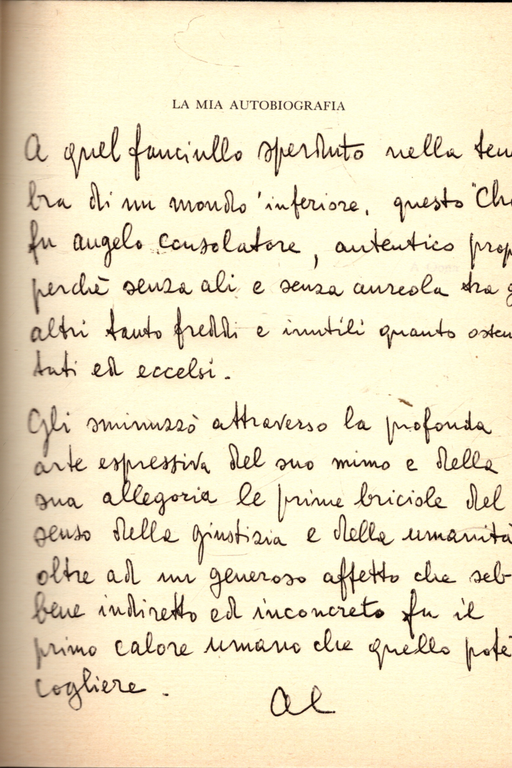 LA MIA AUTOBIOGRAFIA
A quel fanciullo sperduto nella ten
bra di un mondo inferiore, questo "Cha
fu angelo consolatore, autentico prop
perchè senza ali e senza aureola tra g
altri tanto freddi e inutili quanto osten
tati ed eccelsi.
Gli sminuzzò attraverso la profonda
arte espressiva del suo mimo e della
sua allegoria le prime briciole del
senso della giustizia e della umanità
oltre ad un generoso affetto che seb-
bene indiretto ed inconcreto fu il
primo calore umano che quello potè
cogliere.
Al